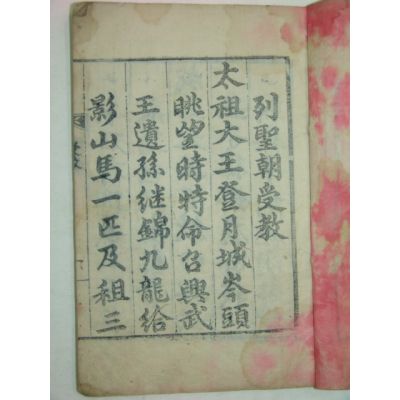 列聖朝受教
太祖大王登月城岑頭
眺望時特命召興武
王遺孫継錦九龍給
影山馬一匹及租三